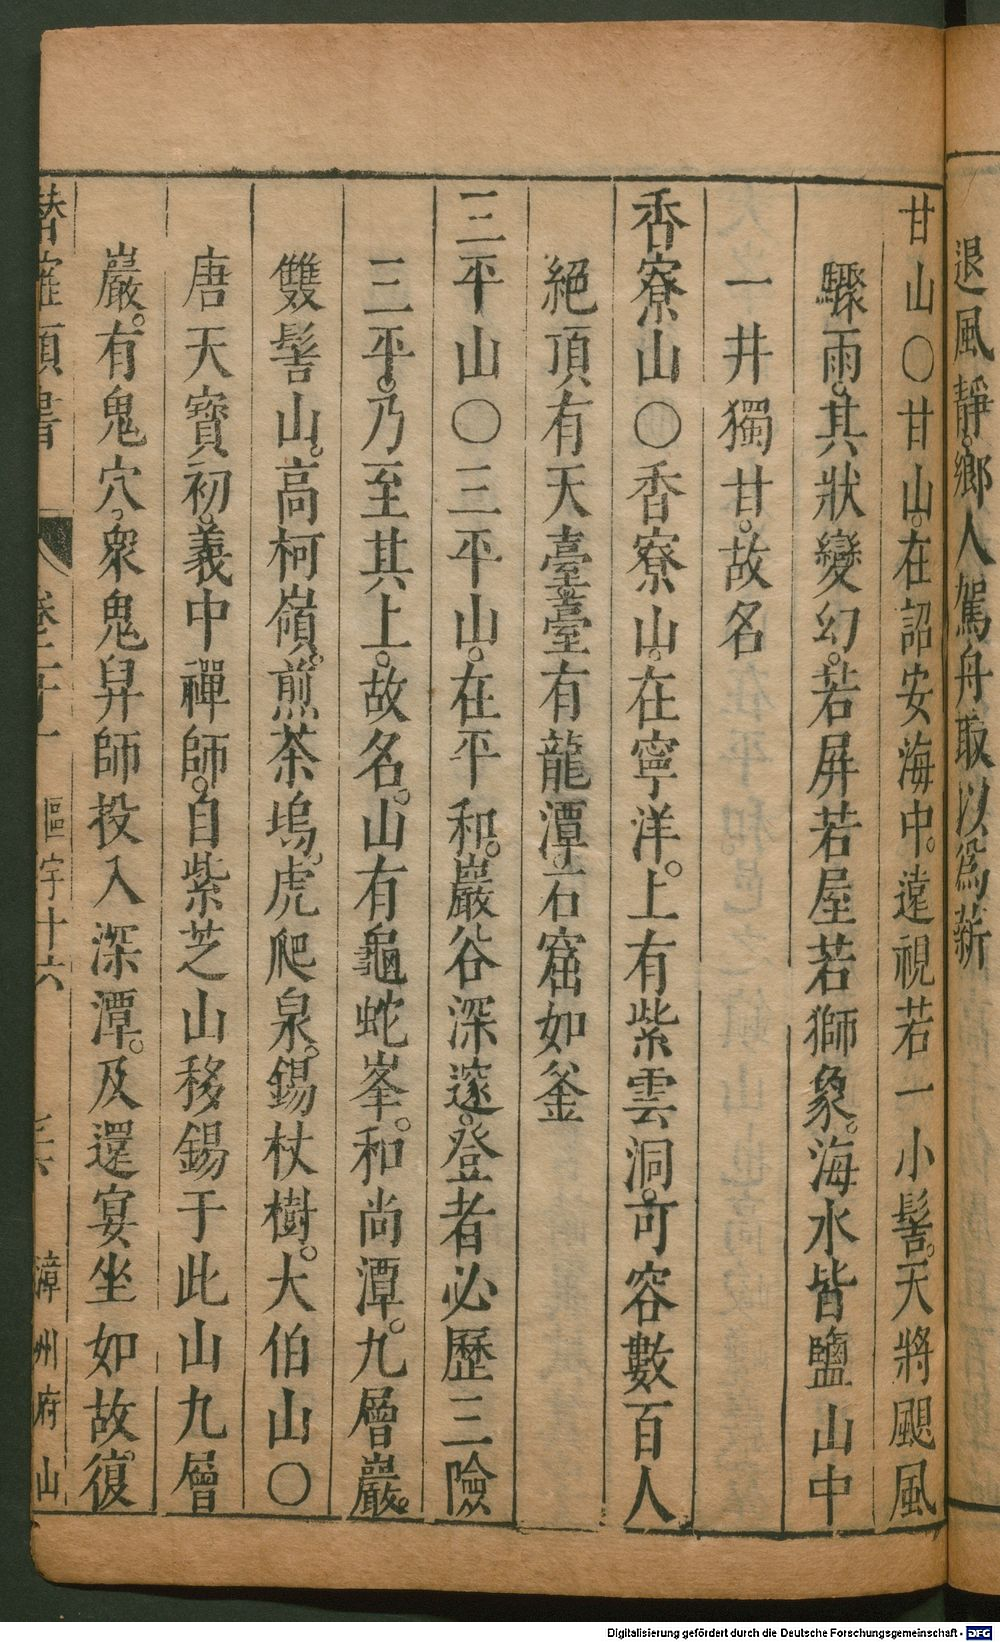 退風靜。鄉人駕舟取以爲薪
甘山○甘山。在詔安海中。遠視若一小髻。天將颶風
驟雨。其狀變幻。若屏若屋若獅象。海水皆鹽山中
一井獨甘。故名
香寮山○香寮山。在寧洋。上有紫雲洞。可容數百人
絕頂有天臺臺有龍潭。石窟如釜
三平山○三平山。在平和。巖谷深邃。登者必歷三險
三平。乃至其上。故名。山有龜蛇峯。和尚潭。九層巖。
雙髻山。高柯嶺。煎茶塢。虎爬泉。錫杖樹。大伯山○
唐天寶初。義中禪師。自紫芝山移錫于此山九層
巖。有鬼穴。衆鬼舁師投入深潭。及還宴坐如故。復
潛確類書 卷二十一 區宇十六 漳州府山
Digitalisierung gefördert durch die Deutsche Forschungsgemeinschaft - DFG